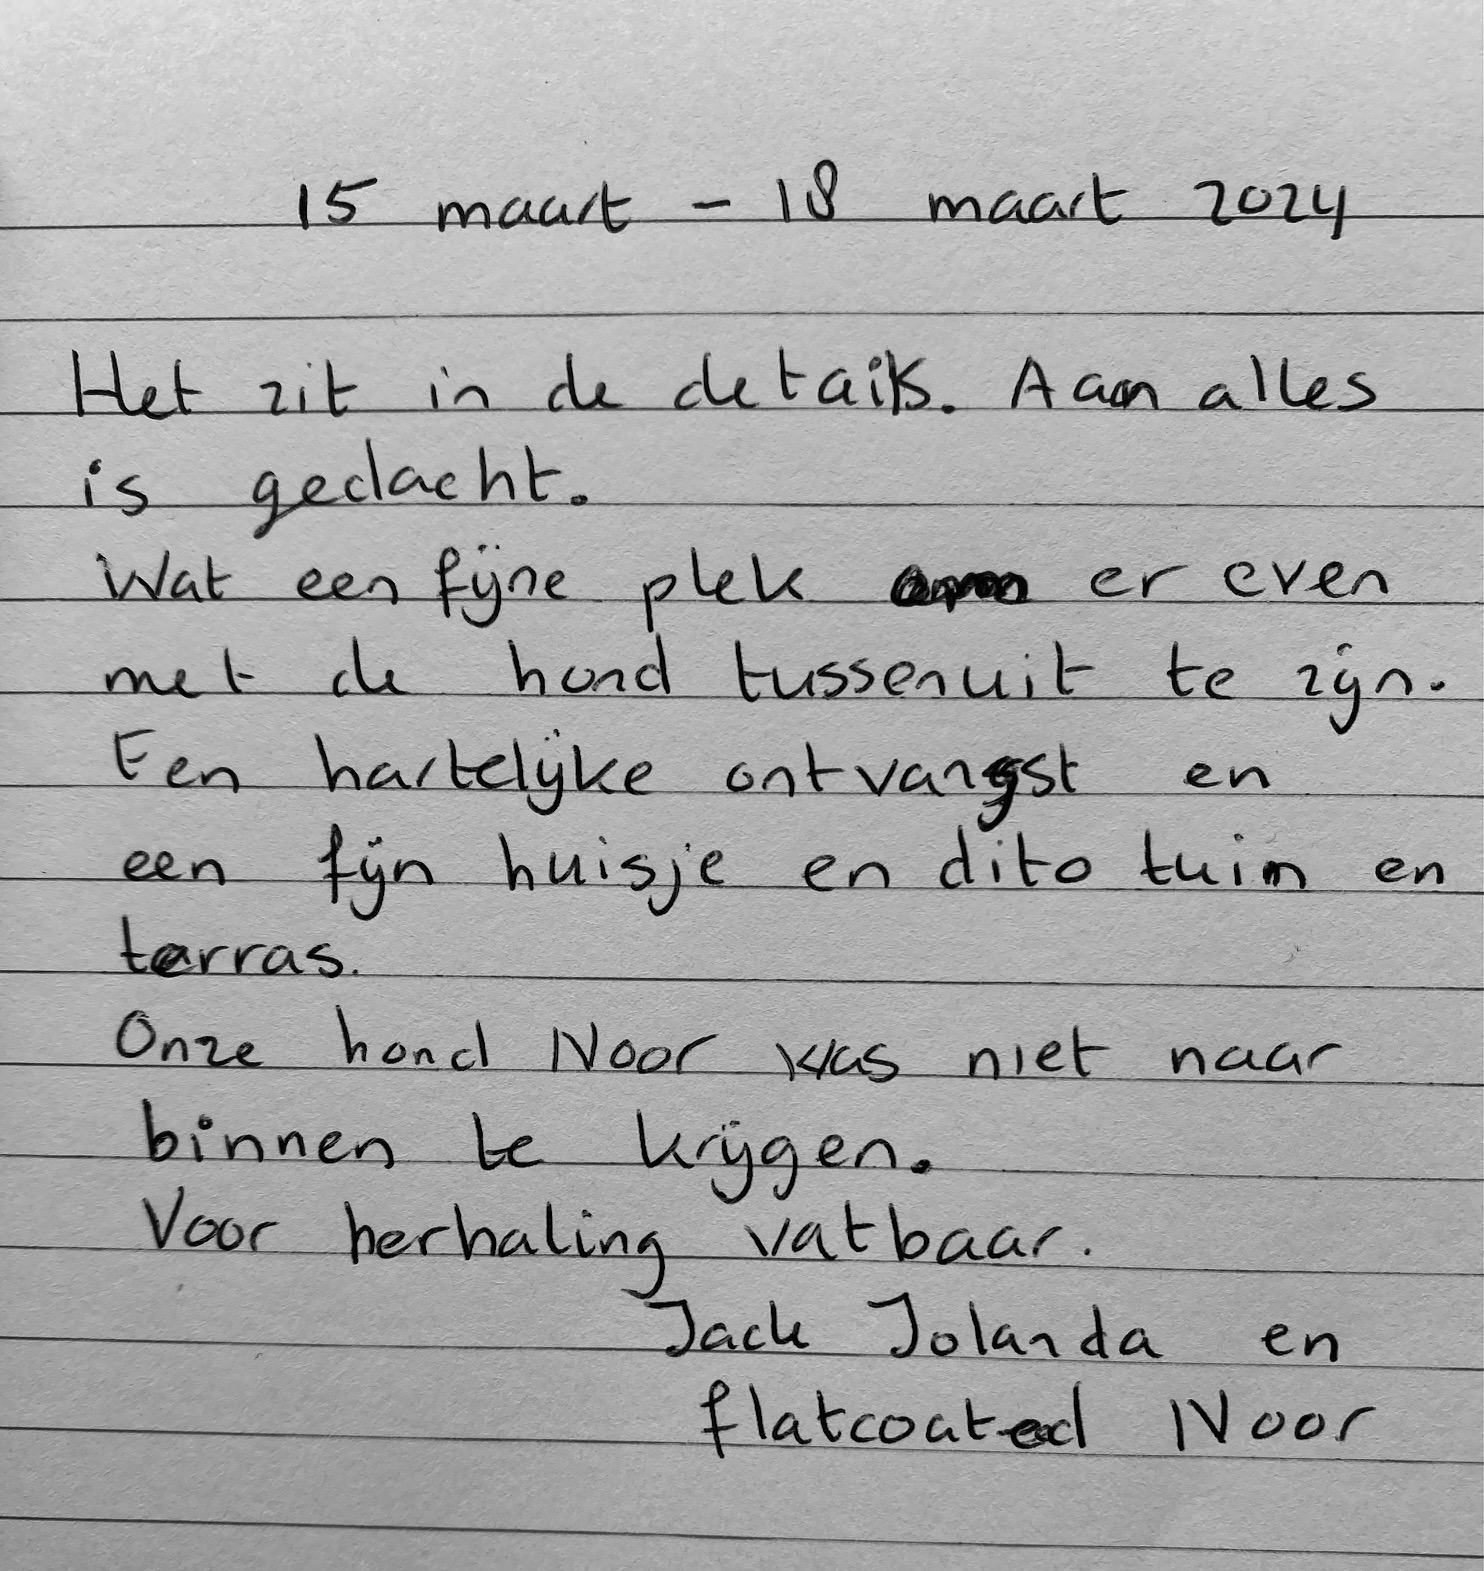 15 maart - 18 maart 2024
Het zit in de details. Aan alles
is gedacht.
Wat een fijne plek om er even
met de hond tussenuit te zijn.
Een hartelijke ontvangst en
een fijn huisje en dito tuin en
terras.
Onze hond Noor was niet naar
binnen te krijgen.
Voor herhaling vatbaar.
Jack Jolanda en
flatcoated Noor